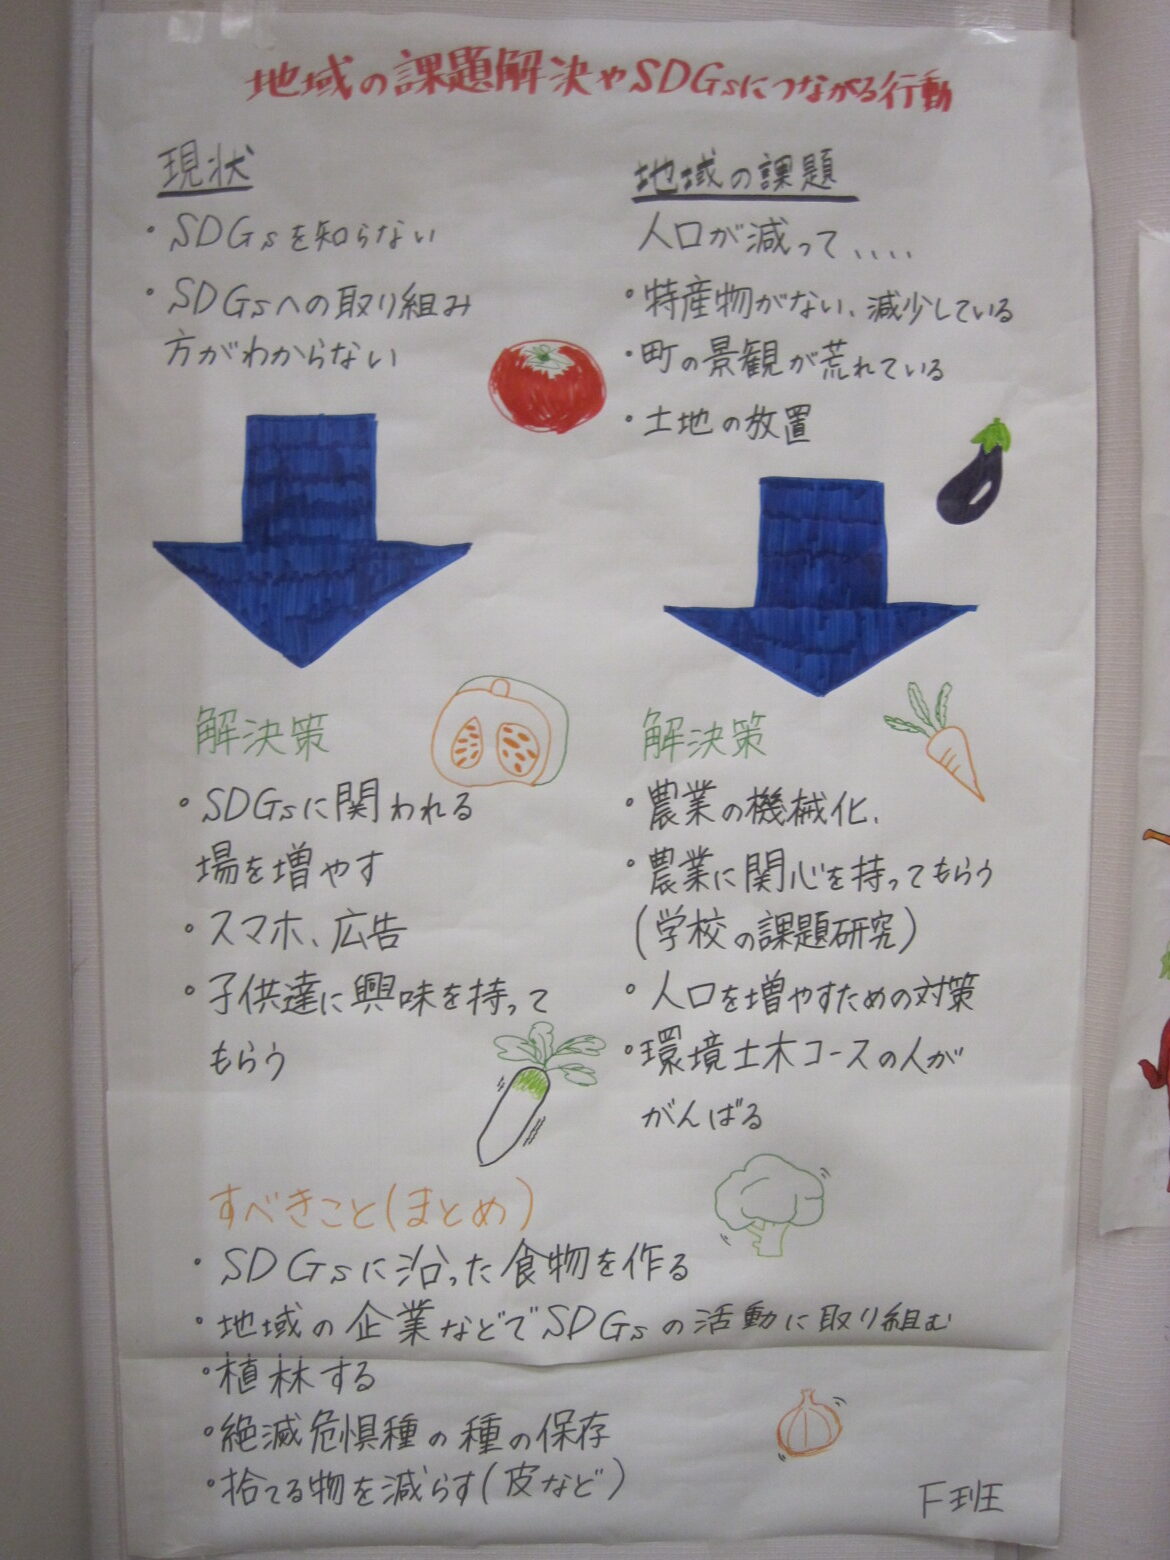 地域の課題解決やSDGsにつながる行動
現状
・SDGsを知らない
・SDGsへの取り組み
方がわからない
地域の課題
人口が減って....
・特産物がない、減少している
・町の景観が荒れている
・土地の放置
解決策
・SDGsに関われる
場を増やす
・スマホ、広告
・子供達に興味を持って
もらう
解決策
・農業の機械化、
・農業に関心を持ってもらう
(学校の課題研究)
・人口を増やすための対策
・環境土木コースの人が
がんばる
すべきこと(まとめ)
・SDGsに沿った食物を作る
・地域の企業などでSDGsの活動に取り組む
・植林する
・絶滅危惧種の種の保存
・捨てる物を減らす(皮など)
F班